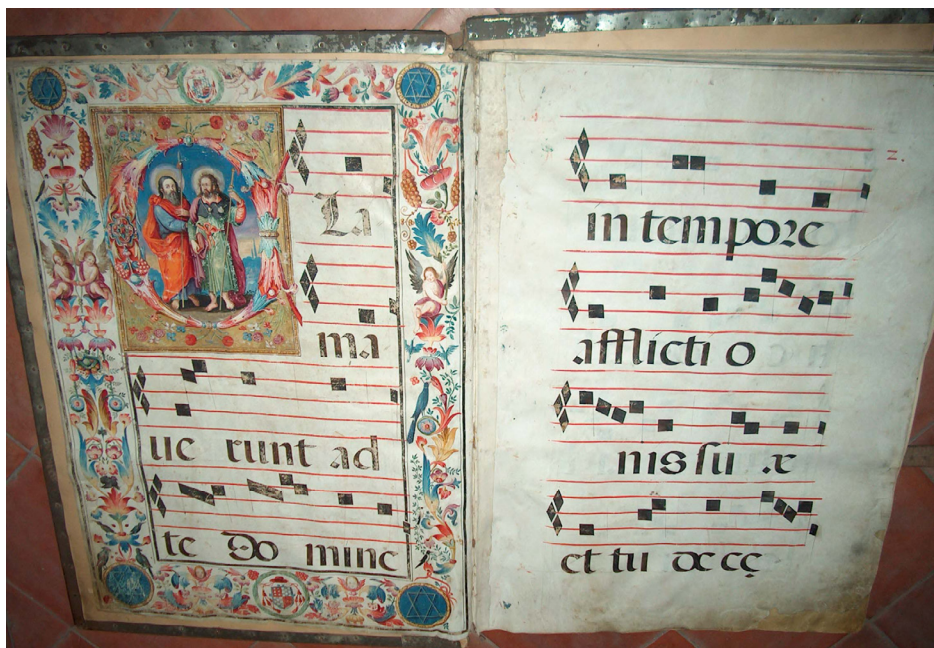 C La
ma
ue runt ad
te Do mine
in tempore
afflicti o
nis su æ
et tu de cę